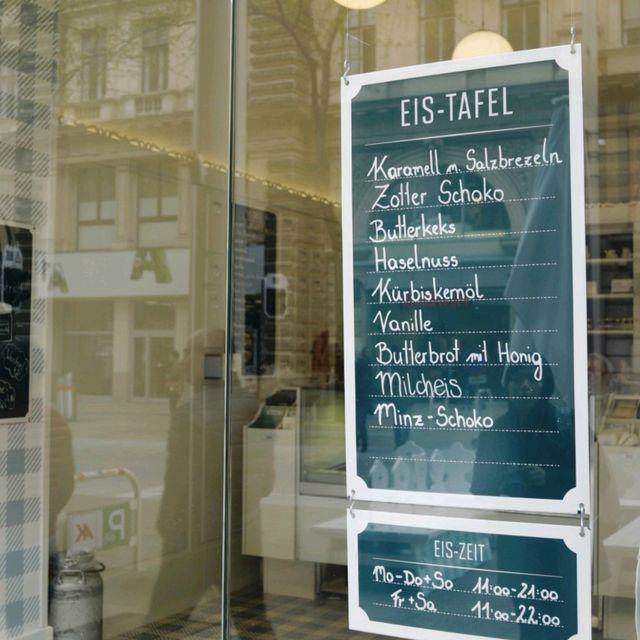 EIS-TAFEL
Karamell m. Salzbrezeln
Zotter Schoko
Butterkeks
Haselnuss
Kürbiskernöl
Vanille
Butterbrot mit Honig
Milcheis
Minz-Schoko
EIS-ZEIT
Mo-Do+So 11:00-21:00
Fr+Sa 11:00-22:00
A
A
P
AK